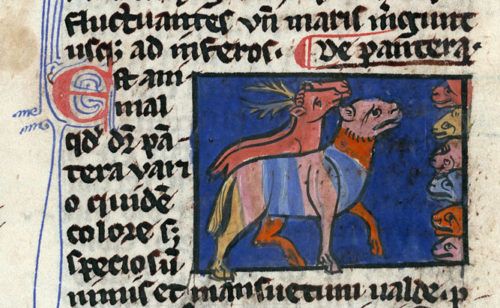 fluctuantes vñ maris
usq; ad inferos. De pantera.
Est ani
mal
qđ dr̄ pā
tera vari
o quidē
colore s;
speciosū
nimis et mansuetum valde.